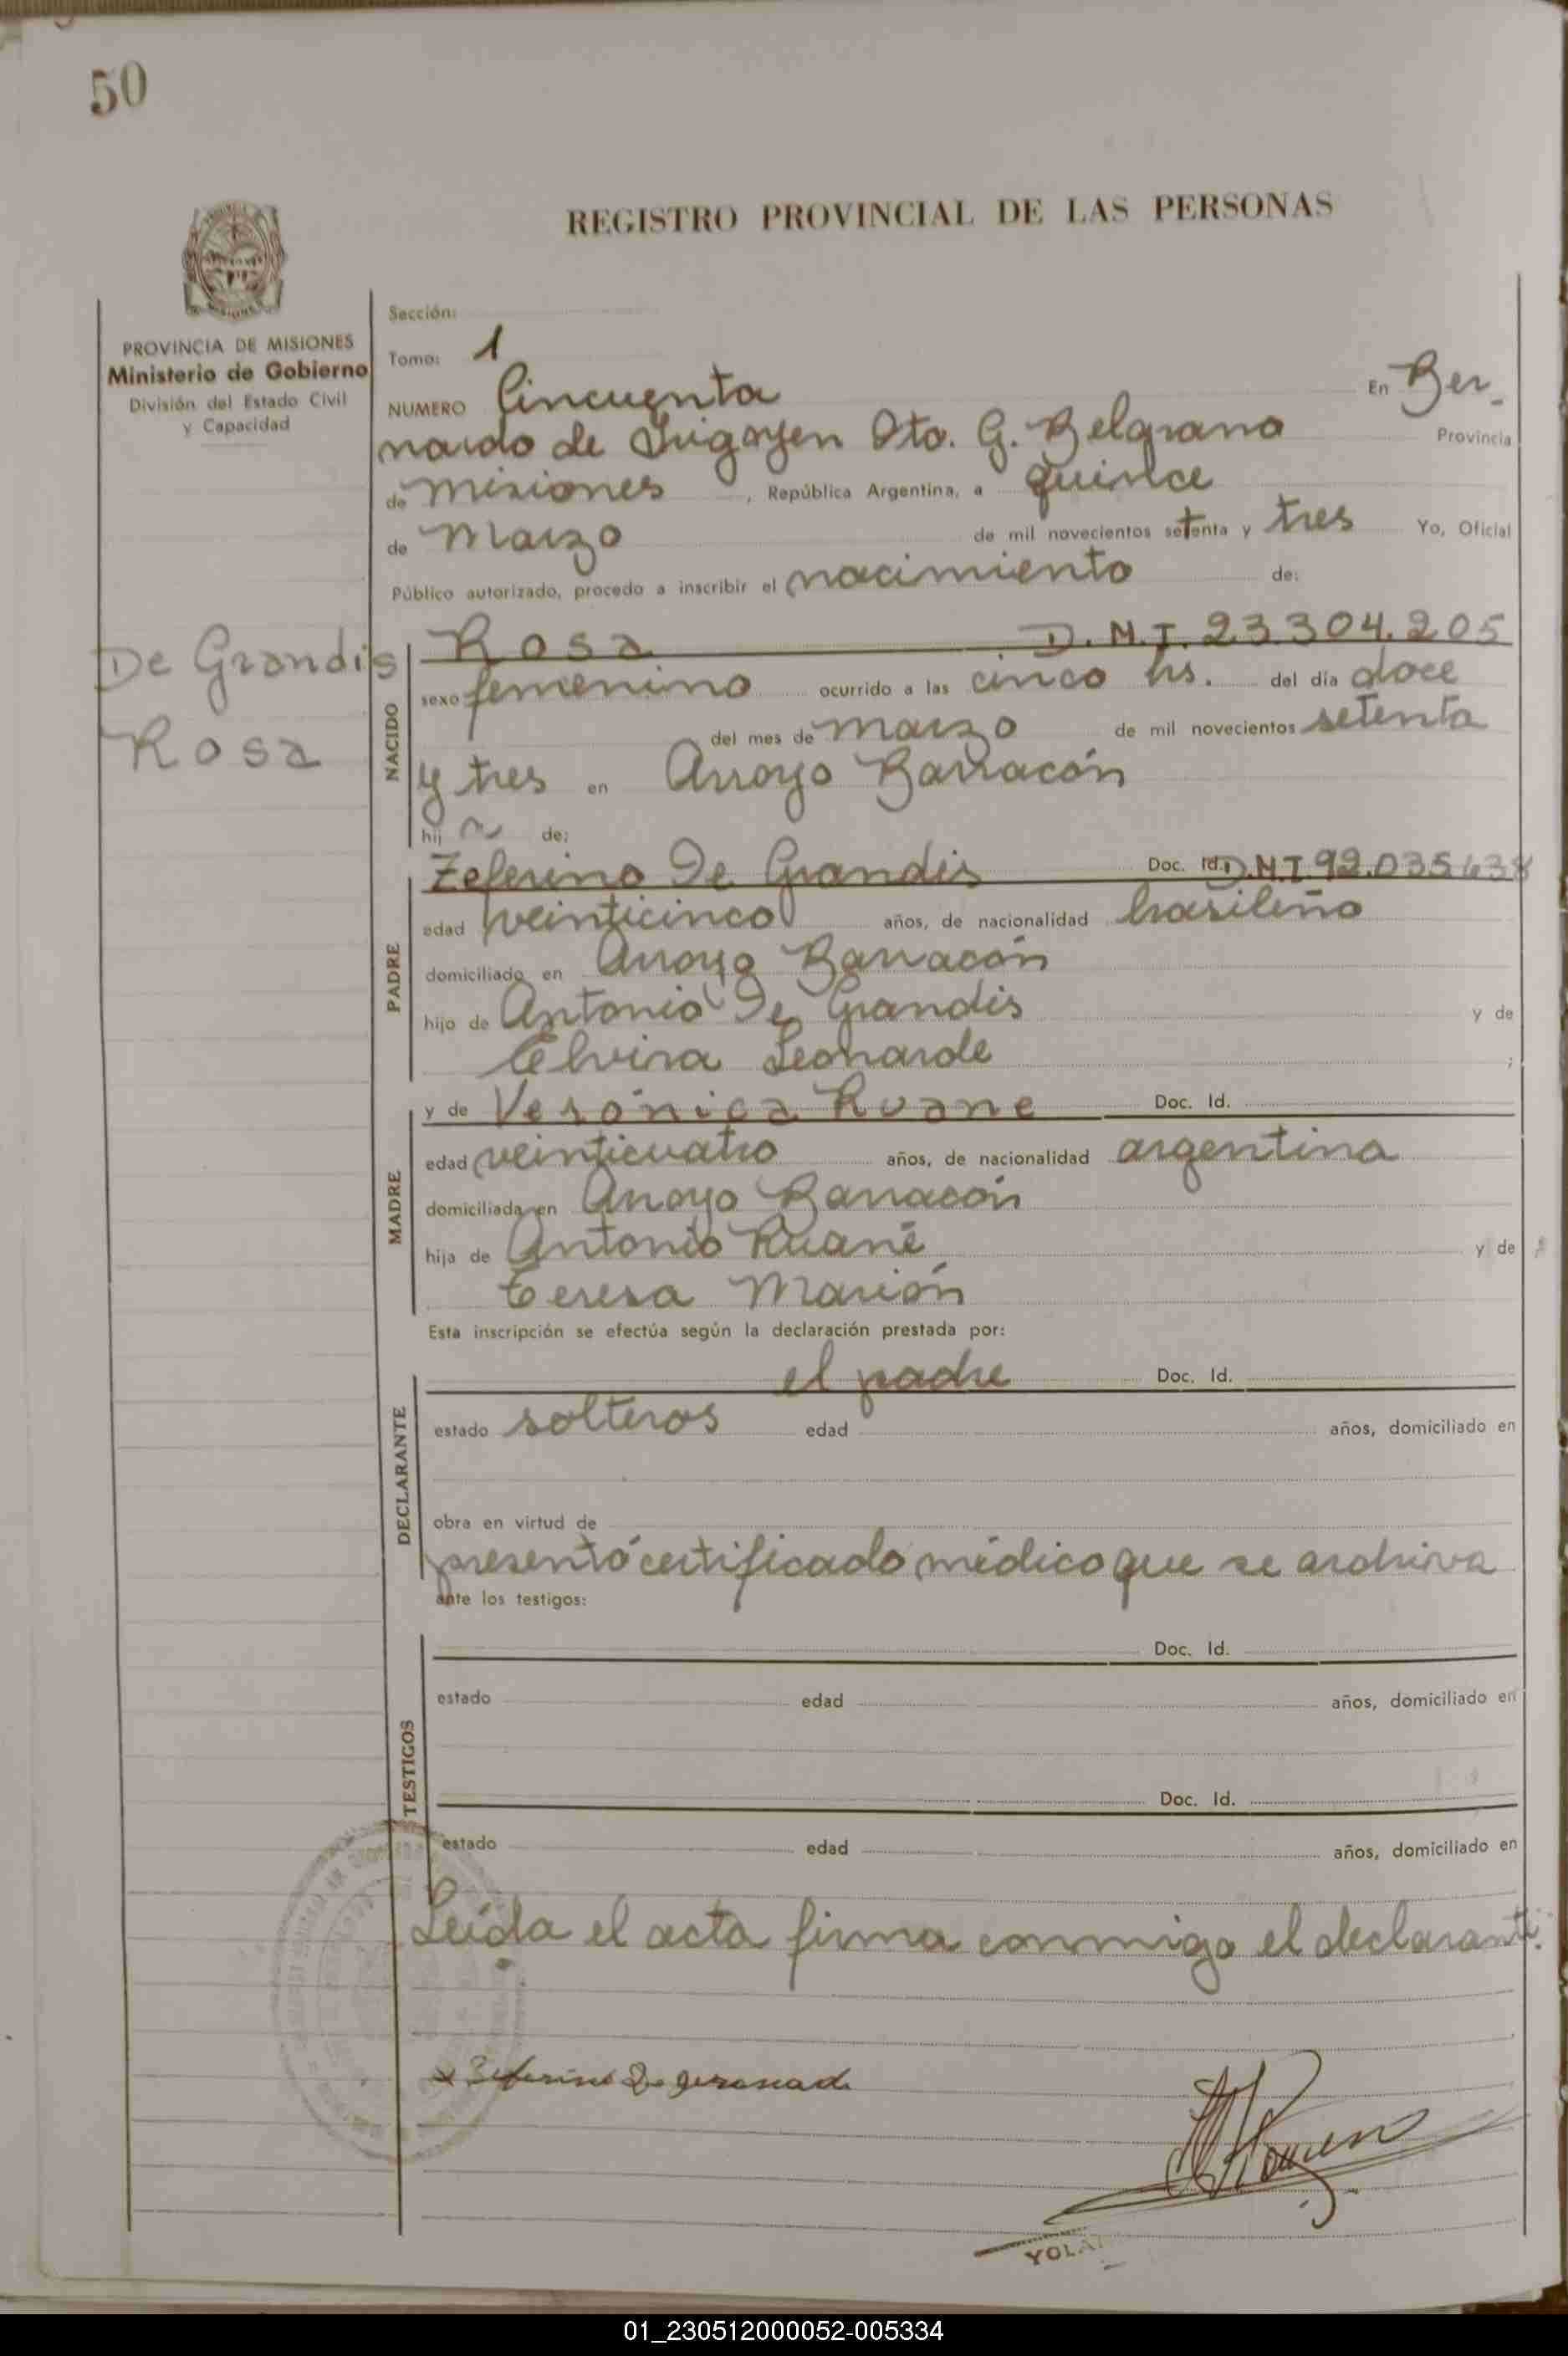 50
REGISTRO PROVINCIAL DE LAS PERSONAS
PROVINCIA DE MISIONES
Ministerio de Gobierno
División del Estado Civil
y Capacidad
Sección:
Tomo: 1
NUMERO Cincuenta En Ber-
nardo de Irigoyen Dto. G. Belgrano Provincia
de Misiones, República Argentina, a quince
de Marzo de mil novecientos setenta y tres Yo, Oficial
Público autorizado, procedo a inscribir el nacimiento de:
De Grandis
Rosa
NACIDO
Rosa D.N.I. 23.304.205
sexo femenino ocurrido a las cinco hs. del día doce
del mes de marzo de mil novecientos setenta
y tres en Arroyo Barracón
hija de:
PADRE
Zeferino De Grandis Doc. Id. D.N.I. 92.035638
edad veinticinco años, de nacionalidad brasileño
domiciliado en Arroyo Barracón
hijo de Antonio De Grandis y de
Elvira Leonarde ;
MADRE
y de Verónica Ruane Doc. Id.
edad veinticuatro años, de nacionalidad argentina
domiciliada en Arroyo Barracón
hija de Antonio Ruané y de
Teresa Marión
Esta inscripción se efectúa según la declaración prestada por:
DECLARANTE
el padre Doc. Id.
estado solteros edad años, domiciliado en
obra en virtud de
presentó certificado médico que se archiva
ante los testigos:
TESTIGOS
Doc. Id.
estado edad años, domiciliado en
Doc. Id.
estado edad años, domiciliado en
Leída el acta firma conmigo el declarante.
YOLA
01_230512000052-005334